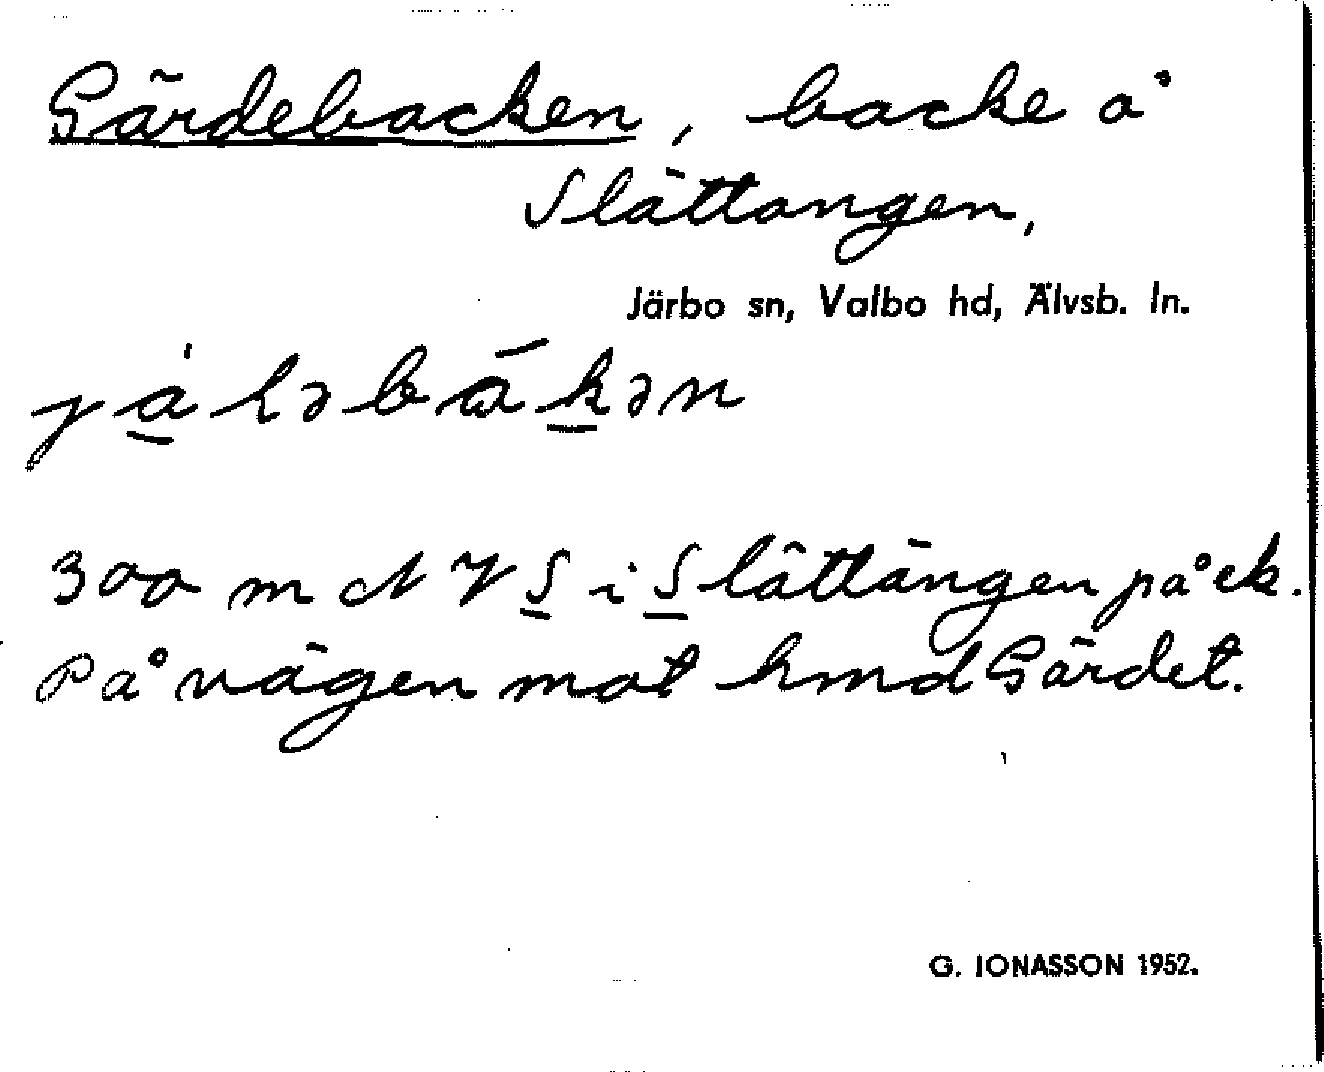 Gärdebacken, backe å
Slättangen,
Järbo sn, Valbo hd, Älvsb. ln.
300 m N V S i Slättängen på ek.
På vägen mot hmd Gärdet.
G. IONASSON 1952.